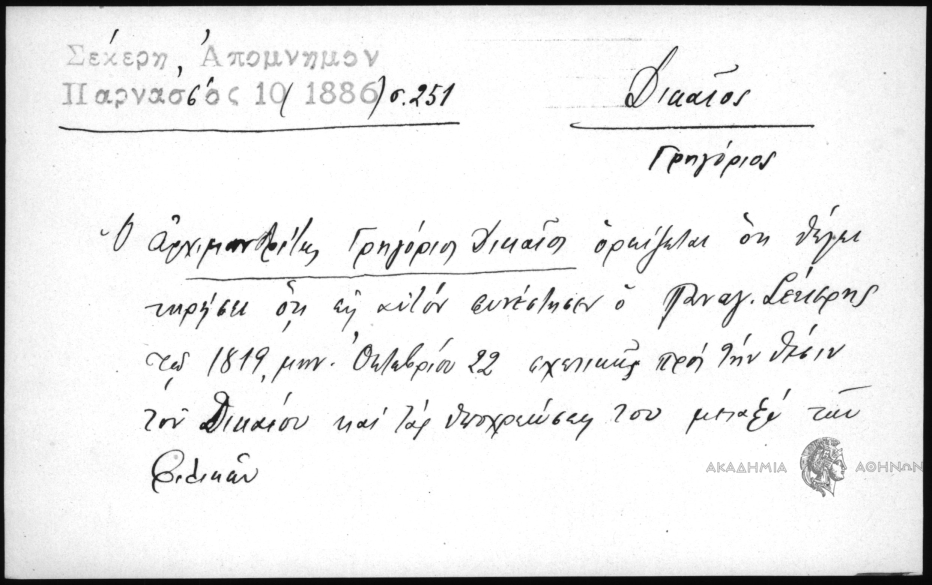 Σεκερη, Απομνημον
Παρνασσός 10 (1886) σ. 251
Δικαῖος
Γρηγόριος
Ὁ ἀρχιμανδρίτης Γρηγόριος Δικαῖος ὁρκίζεται ὅτι θέλει
τηρήσει ὅτι εἰς αὐτόν συνέστησεν ὁ Παναγ. Σέκερης
τῷ 1819, μην. Ὀκτωβρίου 22 σχετικῶς πρός τήν θέσιν
τοῦ Δικαίου καί τάς ὑποχρεώσεις του μεταξύ τῶν
Φιλικῶν
ΑΚΑΔΗΜΙΑ ΑΘΗΝΩΝ